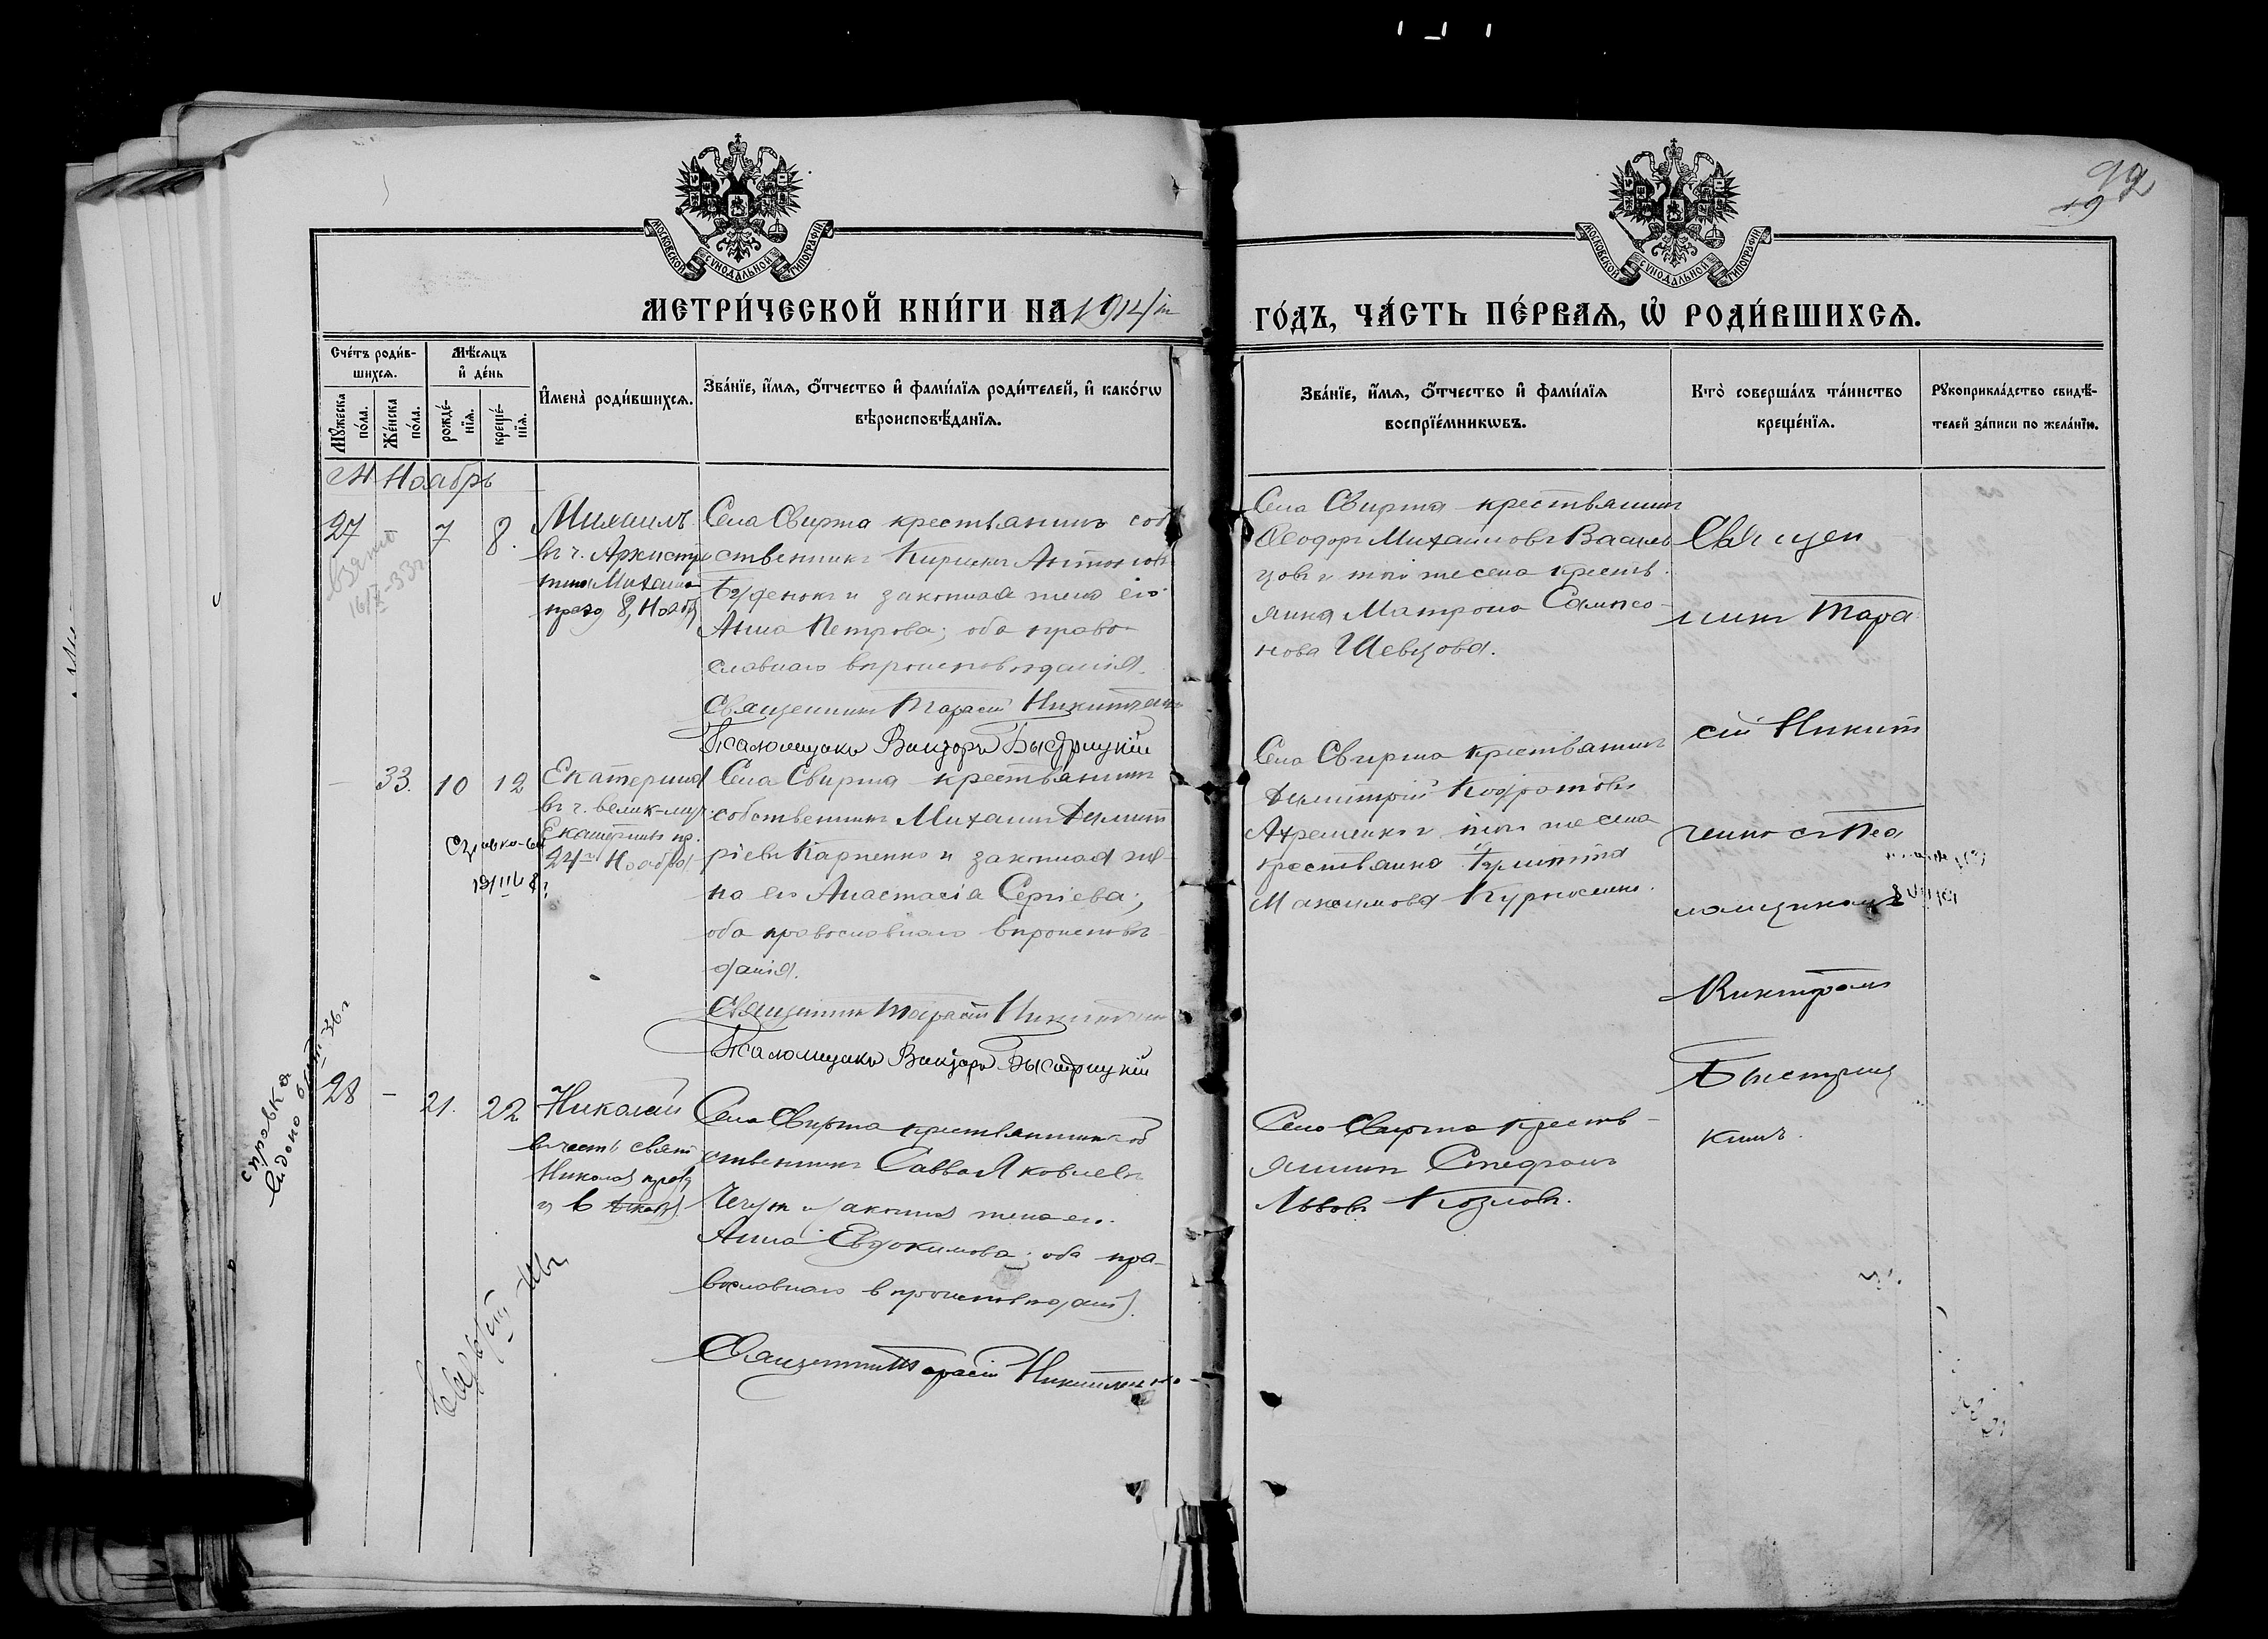 92
19
МОСКОВСКОЙ СѴНОДАЛЬНОЙ ТИПОГРАФІИ
МОСКОВСКОЙ СѴНОДАЛЬНОЙ ТИПОГРАФІИ
МЕТРИ́ЧЕСКОЙ КНИ́ГИ НА 1914/й
ГО́ДЪ, ЧА́СТЬ ПЕ́РВАѦ, Ѡ҆ РОДИ́ВШИХСѦ.
Сче́тъ роди́в-
шихсѧ.
Мѣ́сѧцъ
и҆ де́нь
Мꙋ́жеска
по́ла.
Же́нска
по́ла.
рожде́-
нїѧ.
креще́-
нїѧ.
И҆мена̀ роди́вшихсѧ.
Зва́нїе, и҆́мѧ, ѻ҆́тчество и҆ фами́лїѧ роди́телей, и҆ како́гѡ
вѣроисповѣ́данїѧ.
Зва́нїе, и҆́мѧ, ѻ҆́тчество и҆ фами́лїѧ
воспрїе́мникѡвъ.
Кто̀ соверша́лъ та́инство
креще́нїѧ.
Рꙋкоприкла́дство свидѣ́-
телей за́писи по жела́нїю.
Ноябрь
27 – 7 8.
Михаилъ
въ ч. Архистр
Михаила
празд 8, Нояб
взято
16/X-33г
Села Свирша крестьянинъ соб
ственникъ Кириллъ Антоновъ
Буденокъ и законная жена его
Анна Петрова; оба право-
славнаго вѣроисповѣданія.
Священникъ Тарасій Никитченко
Псаломщикъ Викторъ Быстрицкій
Села Свирша крестьянинъ
Ѳеодоръ Михаиловъ Василь
цовъ и той же села кресть
янка Матрона Сампсо-
нова Шевцова.
Священ
никъ Тара
сій Никит
ченко съ Пса
ломщикомъ
Викторомъ
Быстриц
кимъ.
– 33. 10 12
Екатерина
въ ч. велик-муч.
Екатерины пр.
24го Ноября.
Села Свирша крестьянинъ
собственникъ Михаилъ Димит
ріевъ Карпенко и законная же-
на его Анастасія Сергіева;
оба православнаго вѣроисповѣ
данія.
Священникъ Тарасій Никитченко
Псаломщикъ Викторъ Быстрицкій
Села Свирша крестьянинъ
Димитрій Кодратовъ
Ахременко и той же села
крестьянка
Максимова
справка
видано
36 г
28 – 21. 22
Николай
въ честь свят
Николая празд
6 Декаб.
Села Свирша крестьянинъ соб
ственникъ Савва Яковлевъ
и законная жена его
Анна Евдокимова; оба пра-
вославнаго вѣроисповѣданія.
Священникъ Тарасій Никитченко
Села Свирша кресть-
янинъ Стефанъ
Львовъ Козловъ.